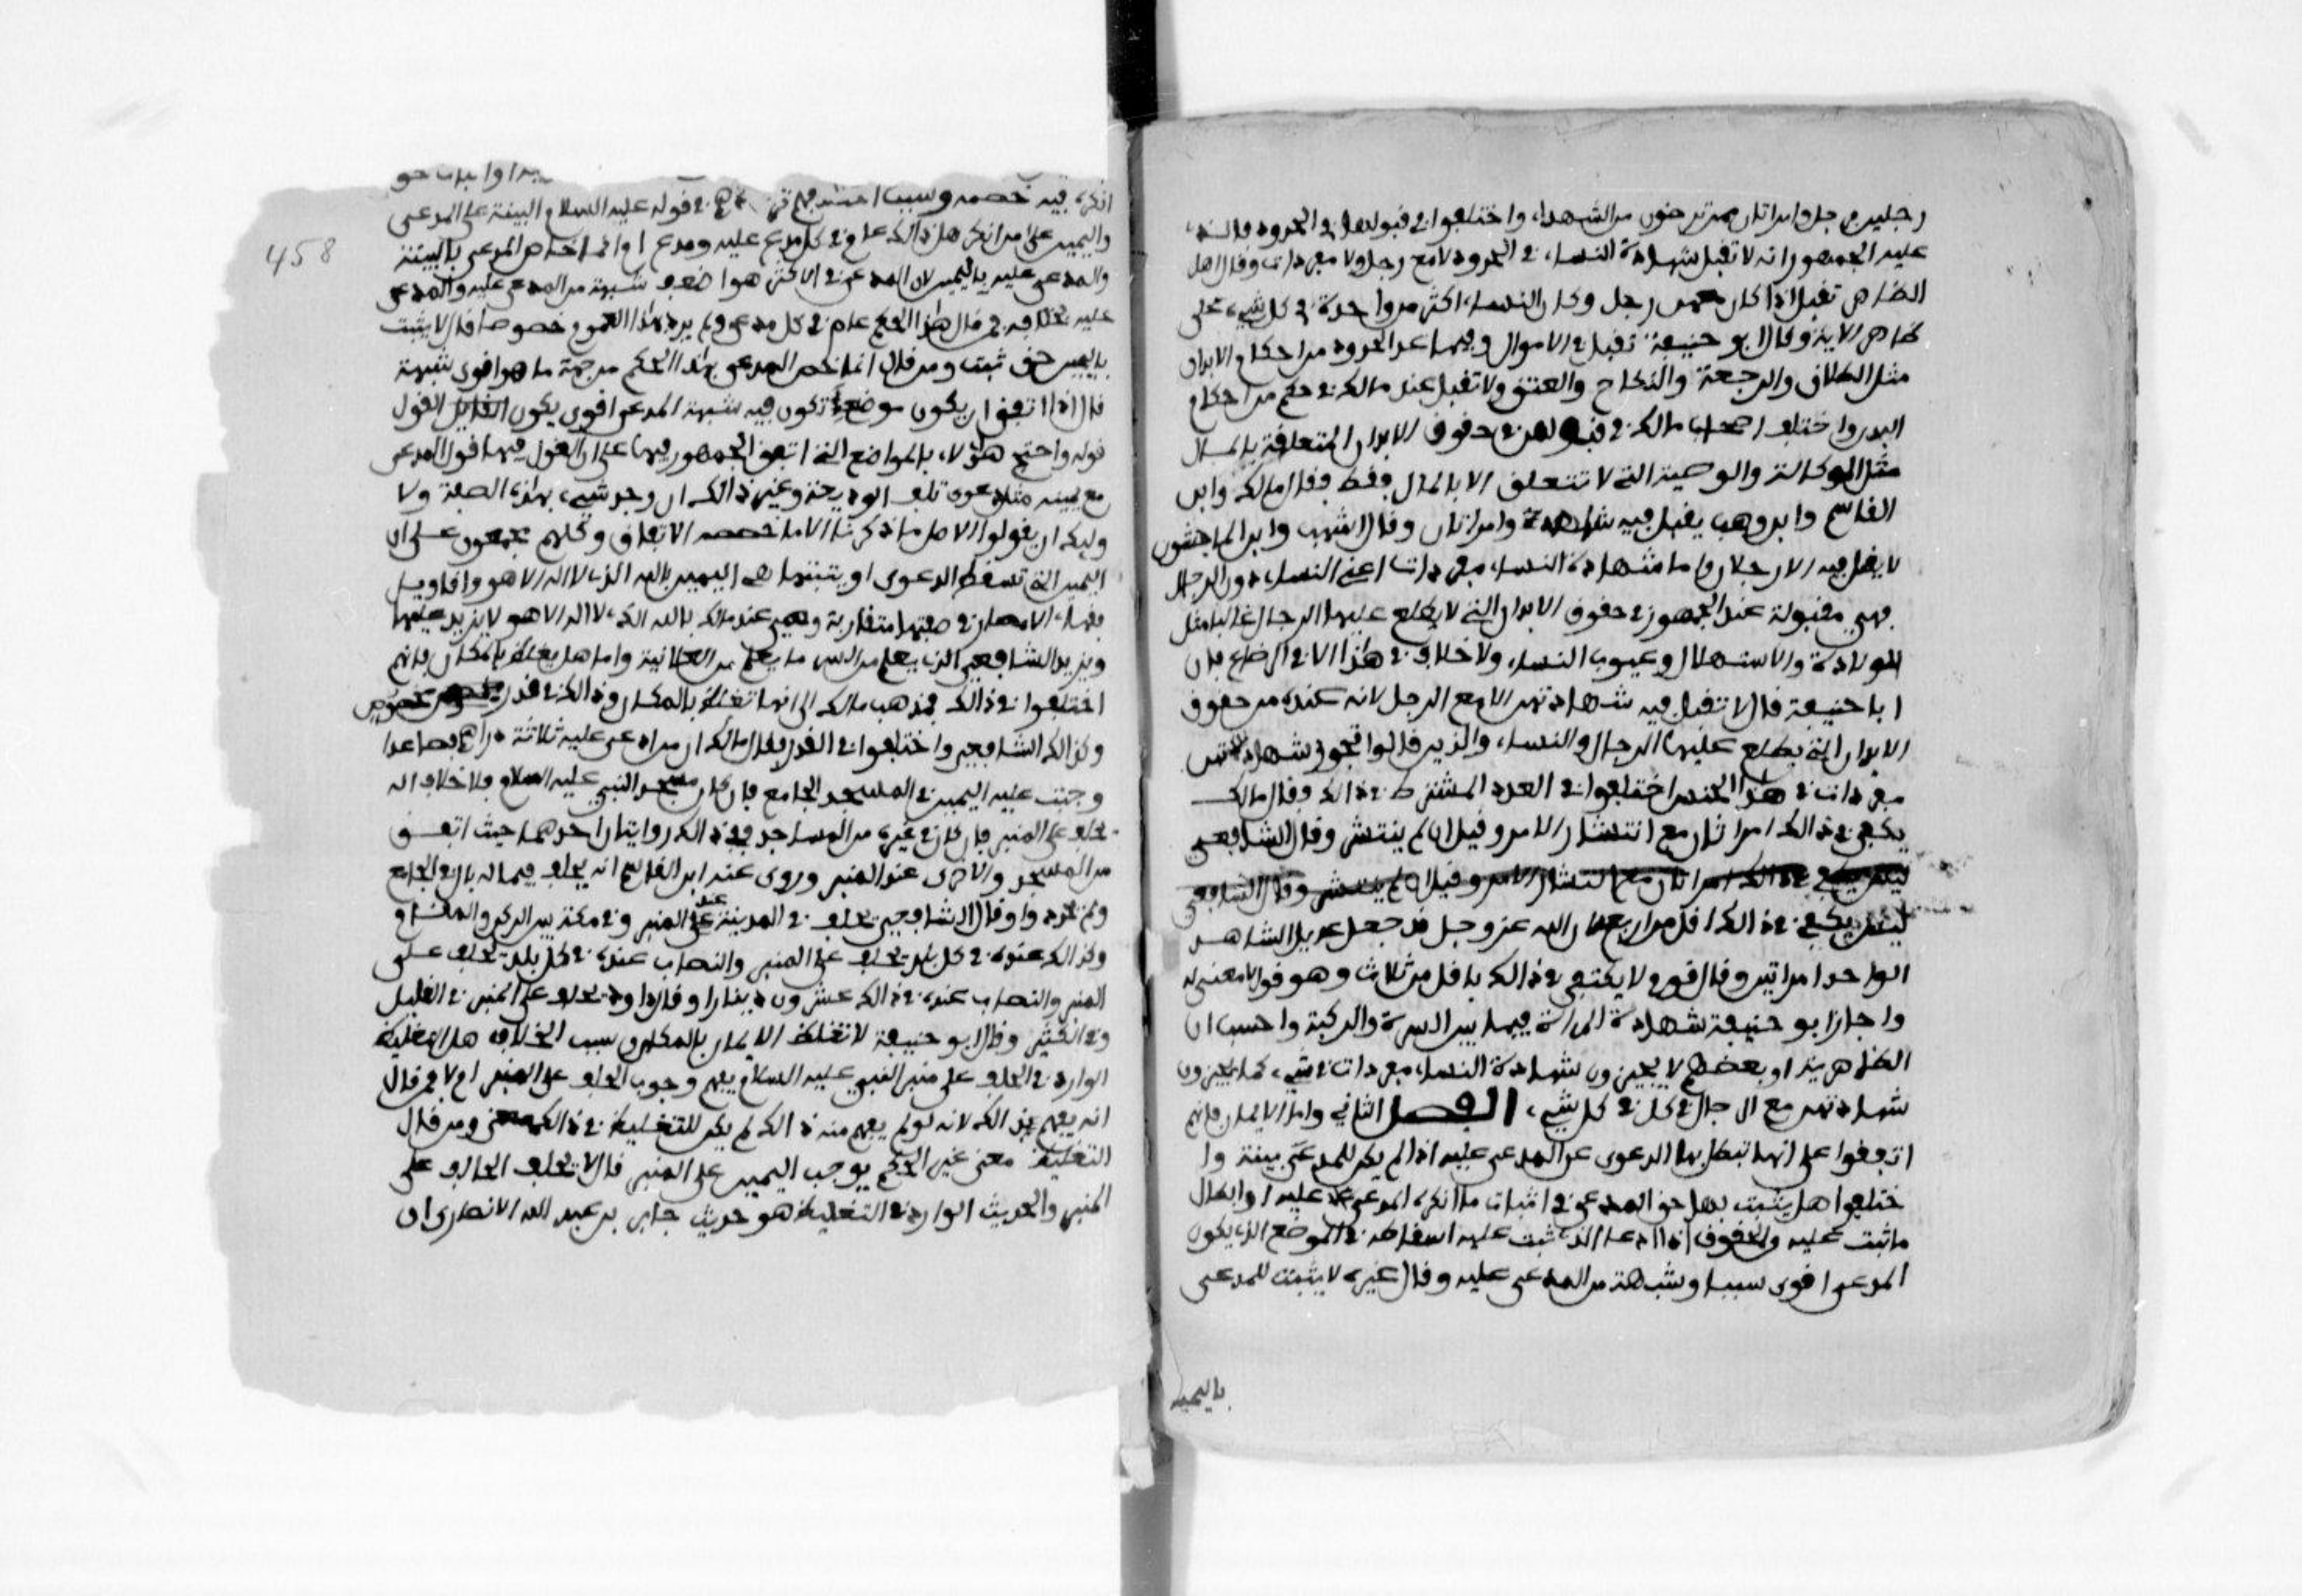 رجلين فرجل وامراتان ممن ترضون من الشهداء واختلفوا في قبولهما في الحدود فالذي
عليه الجمهور انه لا تقبل شهادة النساء في الحدود لا مع رجل ولا مفردات وقال اهل
الظاهر تقبل اذا كان معهن رجل وكان النساء اكثر من واحدة في كل شيء على
ظاهر الاية وقال ابو حنيفة تقبل في الاموال وفيما عدا الحدود من احكام الابدان
مثل الطلاق والرجعة والنكاح والعتق ولا تقبل عند مالك في حكم من احكام
البدن واختلف اصحاب مالك في قبولهن في حقوق الابدان المتعلقة بالمال
مثل الوكالة والوصية التي لا تتعلق الا بالمال فقط فقال مالك وابن
القاسم وابن وهب يقبل فيه شاهد وامراتان وقال اشهب وابن الماجشون
لا يقبل فيه الا رجلان واما شهادة النساء مفردات اعني النساء دون الرجال
فهي مقبولة عند الجمهور في حقوق الابدان التي لا يطلع عليها الرجال غالبا مثل
الولادة والاستهلال وعيوب النساء ولا خلاف في هذا الا في الرضاع فان
ابا حنيفة قال لا تقبل فيه شهادتهن الا مع الرجل لانه عنده من حقوق
الابدان التي يطلع عليها الرجال والنساء والذين قالوا بجواز شهادتهن
مفردات في هذا الجنس اختلفوا في العدد المشترط في ذالك فقال مالك
يكفي في ذالك امراتان مع انتشار الامر وقيل ان لم ينتشر وقال الشافعي
ليس يكفي في ذالك امراتان مع انتشار الامر وقيل ان لم ينتشر وقال الشافعي
ليس يكفي في ذالك اقل من اربع لان الله عز وجل قد جعل عديل الشاهد
الواحد امراتين وقال قوم لا يكتفى في ذالك باقل من ثلاث وهو قول لا معنى له
واجاز ابو حنيفة شهادة المراة فيما بين السرة والركبة واحسب ان
الظاهرية او بعضهم لا يجيزون شهادة النساء مفردات في شيء كما يجيزون
شهادتهن مع الرجال في كل شيء الفصل الثاني واما الايمان فانهم
اتفقوا على انها تبطل بها الدعوى عن المدعى عليه اذا لم يكن للمدعي بينة وا
ختلفوا هل يثبت بها حق المدعي في اثبات ما انكره المدعى عليه او ابطال
ما ثبت عليه من الحقوق اذا ادعا الذي ثبت عليه اسقاطه في الموضع الذي يكون
المدعي اقوى سببا وشبهة من المدعى عليه وقال غيره لا يثبت للمدعي
باليمين
انكره فيه خصمه وسبب اختلافهم في قوله عليه السلام البينة على المدعي
واليمين على من انكر هل ذالك عام في كل مدعى عليه ومدع ام انما خص المدعي بالبينة
والمدعى عليه باليمين لان المدعي في الاكثر هو اضعف شبهة من المدعى عليه والمدعى
عليه بخلافه فمن قال هذا الحكم عام في كل مدعي ولم يرد بهذا العموم خصوصا قال لا يثبت
باليمين حق ثبت ومن قال انما خص المدعي بهذا الحكم من جهة ما هو اقوى شبهة
قال اذا اتفق ان يكون موضع تكون فيه شبهة المدعي اقوى يكون القايل القول
قوله واحتج هؤلاء بالمواضع التي اتفق الجمهور فيها على ان القول فيها قول المدعي
مع يمينه مثل دعوى تلف الوديعة وغير ذالك ان وجد شيء بهذه الصفة ولا
وليك ان يقولوا الاصل ما ذكرنا الا ما خصصه الاتفاق وكلهم مجمعون على ان
اليمين التي تسقط الدعوى او يثبتها هي اليمين بالله الذي لا اله الا هو واقاويل
فقهاء الامصار في صفتها متقاربة وهي عند مالك بالله الذي لا اله الا هو لا يزيد عليها
ويزيد الشافعي الذي يعلم من السر ما يعلم من العلانية واما هل يغلظ بالمكان فانهم
اختلفوا في ذالك فذهب مالك الى انها تغلظ بالمكان وذالك في قدر مخصوص
وكذالك الشافعي واختلفوا في القدر فقال مالك ان من ادعي عليه ثلاثة دراهم فصاعدا
وجبت عليه اليمين في المسجد الجامع فان كان مسجد النبي عليه السلام فلا خلاف انه
يحلف على المنبر فان كان في غيره من المساجد ففي ذالك روايتان احدهما حيث اتفق
من المسجد والاخرى عند المنبر وروى عنه ابن القاسم انه يحلف فيما له بال في الجامع
ولم يحدد وقال الشافعي يحلف في المدينة عند المنبر وفي مكة بين الركن والمقام
وكذالك عنده في كل بلد يحلف على المنبر والنصاب عنده في كل بلد يحلف على
المنبر والنصاب عنده في ذالك عشرون دينارا وقال داود يحلف على المنبر في القليل
وفي الكثير وقال ابو حنيفة لا تغلظ الايمان بالمكان وسبب الخلاف هل التغليظ
الوارد في الحلف على منبر النبي عليه السلام يفهم وجوب الحلف على المنبر ام لا فمن قال
انه يفهم ذالك لانه لو لم يفهم منه ذالك لم يكن للتغليظ في ذالك معنى ومن قال
التغليظ معنى غير الحكم بوجوب اليمين على المنبر قال لا يحلف الحالف على
المنبر والحديث الوارد في التغليظ هو حديث جابر بن عبد الله الانصاري ان
458